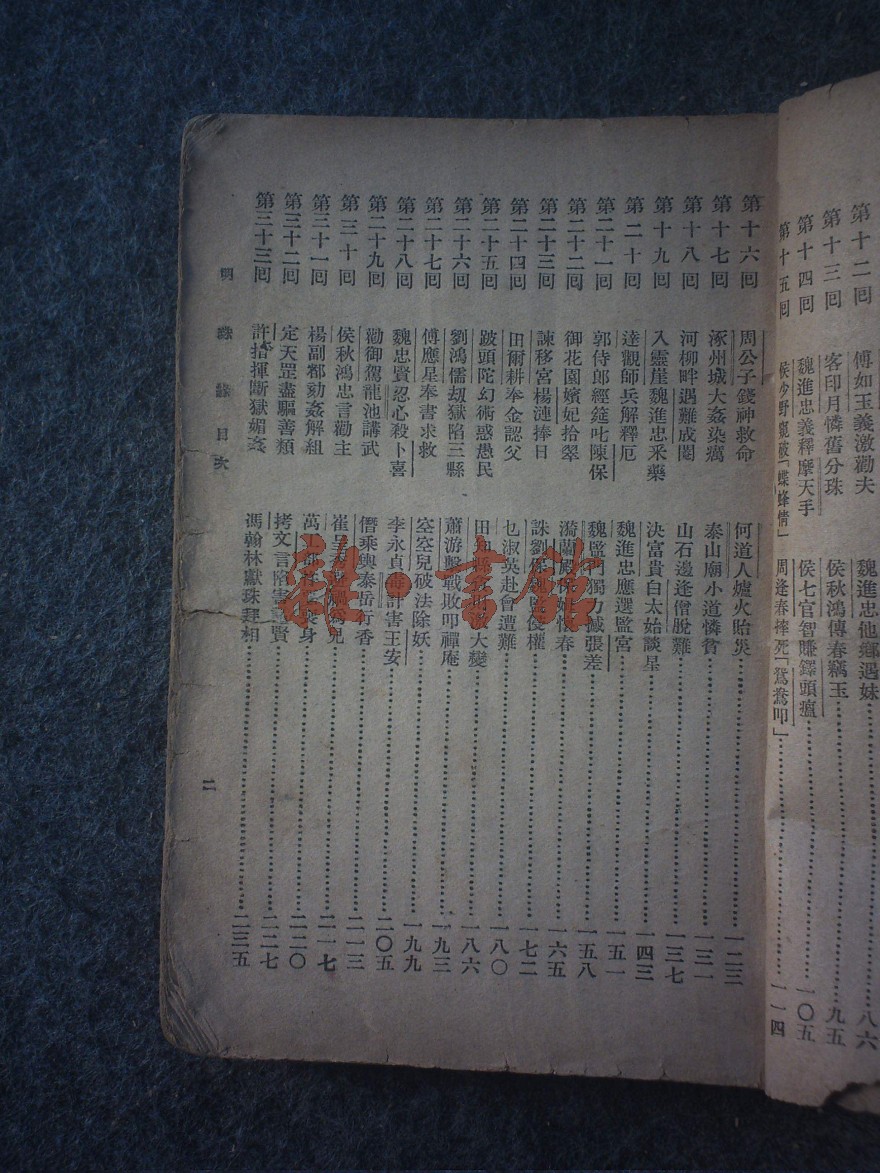 第十二回 傅如玉義激勸夫 魏進忠他鄉遇妹 八六
第十三回 客印月憐舊分珠 侯秋鴻傳春竊玉 九五
第十四回 魏進忠義釋摩天手 侯七官智賺鐸頭瘟 一〇五
第十五回 侯少野窺破「蝶蜂情」 周逢春摔死「鴛鴦叩」 一一四
第十六回 周公子錢神救命 何道人爐火貽災 一二三
第十七回 涿州城大姦染癘 泰山廟小道憐貧 一三一
第十八回 河柳畔遇難成閹 山石邊逢僧脫難 一三七
第十九回 入靈崖魏進忠采藥 決富貴白太始談星 一四三
第二十回 達觀師兵解釋厄 魏進忠應選監宮 一五一
第二十一回 郭侍郎經筵叱陳保 魏監門獨力撼張差 一五八
第二十二回 御花園嬪妃拾翠 漪蘭殿保姆懷春 一六五
第二十三回 諫移宮楊漣捧日 誅劉保魏監侵權 一七二
第二十四回 田爾耕奉金認父 乜淑英赴會遭難 一八〇
第二十五回 跛頭陀幻術惑愚民 田知縣 大變 一八六
第二十六回 劉鴻儒刼獄陷三縣 蕭游擊戰敗叩禪庵 一九三
第二十七回 傅應星奉書求救 空空兒破法除妖 一九九
第二十八回 魏忠賢忍心殺卜喜 李永貞毒計害王安 二〇五
第二十九回 勸御駕龍池講武 僭乘輿泰岳行香 二一三
第三十回 侯秋鴻忠言勸主 崔呈秀 兒 二一七
第三十一回 楊副都劾姦解組 萬 身 二二〇
第三十二回 定天罡盡驅善類 拷文言陷害 賢 二二七
第三十三回 許指揮斷獄媚姦 馮翰林獻珠拜相 二三五
明 珠 緣 目 次
二
雜·書館